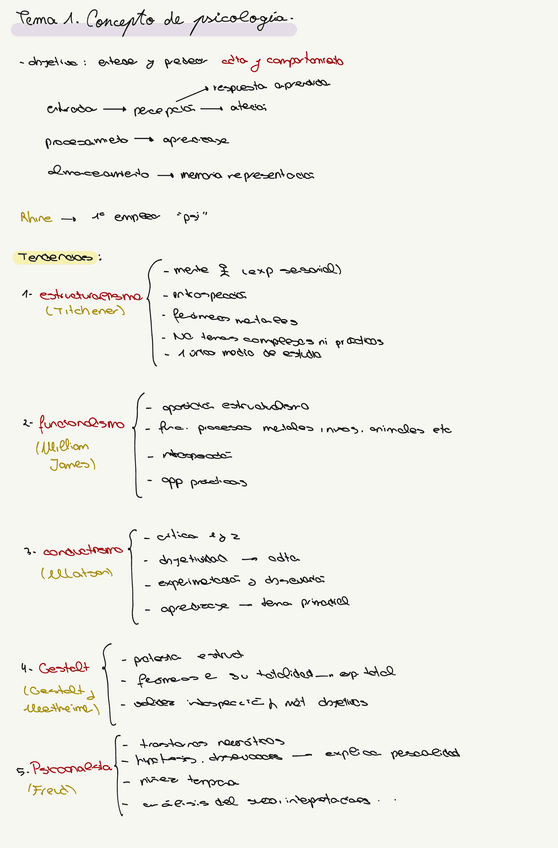 Tema 1. Concepto de psicología.
- objetivo: entender y predecir cdta y comportamiento
respuesta aprendida
entrada → percepción → atención
procesamiento → aprendizaje
almacenamiento → memoria representación
Rhine → 1º empezar "psi"
Tendencias:
1- estructuralismo
(Titchener)
- mente (exp sensorial)
- introspección
- fenómenos mentales
- NO temas complejos ni prácticos
- 1 único medio de estudio
2- funcionalismo
(William
James)
- oposición estructuralismo
- func. procesos mentales, animales etc
- introspección
- app prácticas
3- conductismo
(Watson)
- crítica 1 y 2
- objetividad → cdta
- experimentación y observación
- aprendizaje — tema primordial
4- Gestalt
(Gestalt y
Wertheimer)
- estruct
- fenómenos en su totalidad → exp total
- introspección y mét objetivos
5. Psicoanalista
(Freud)
- trastornos neuróticos
- hipnosis, observaciones — explica personalidad
- niñez temprana
- análisis del sueño, interpretaciones...